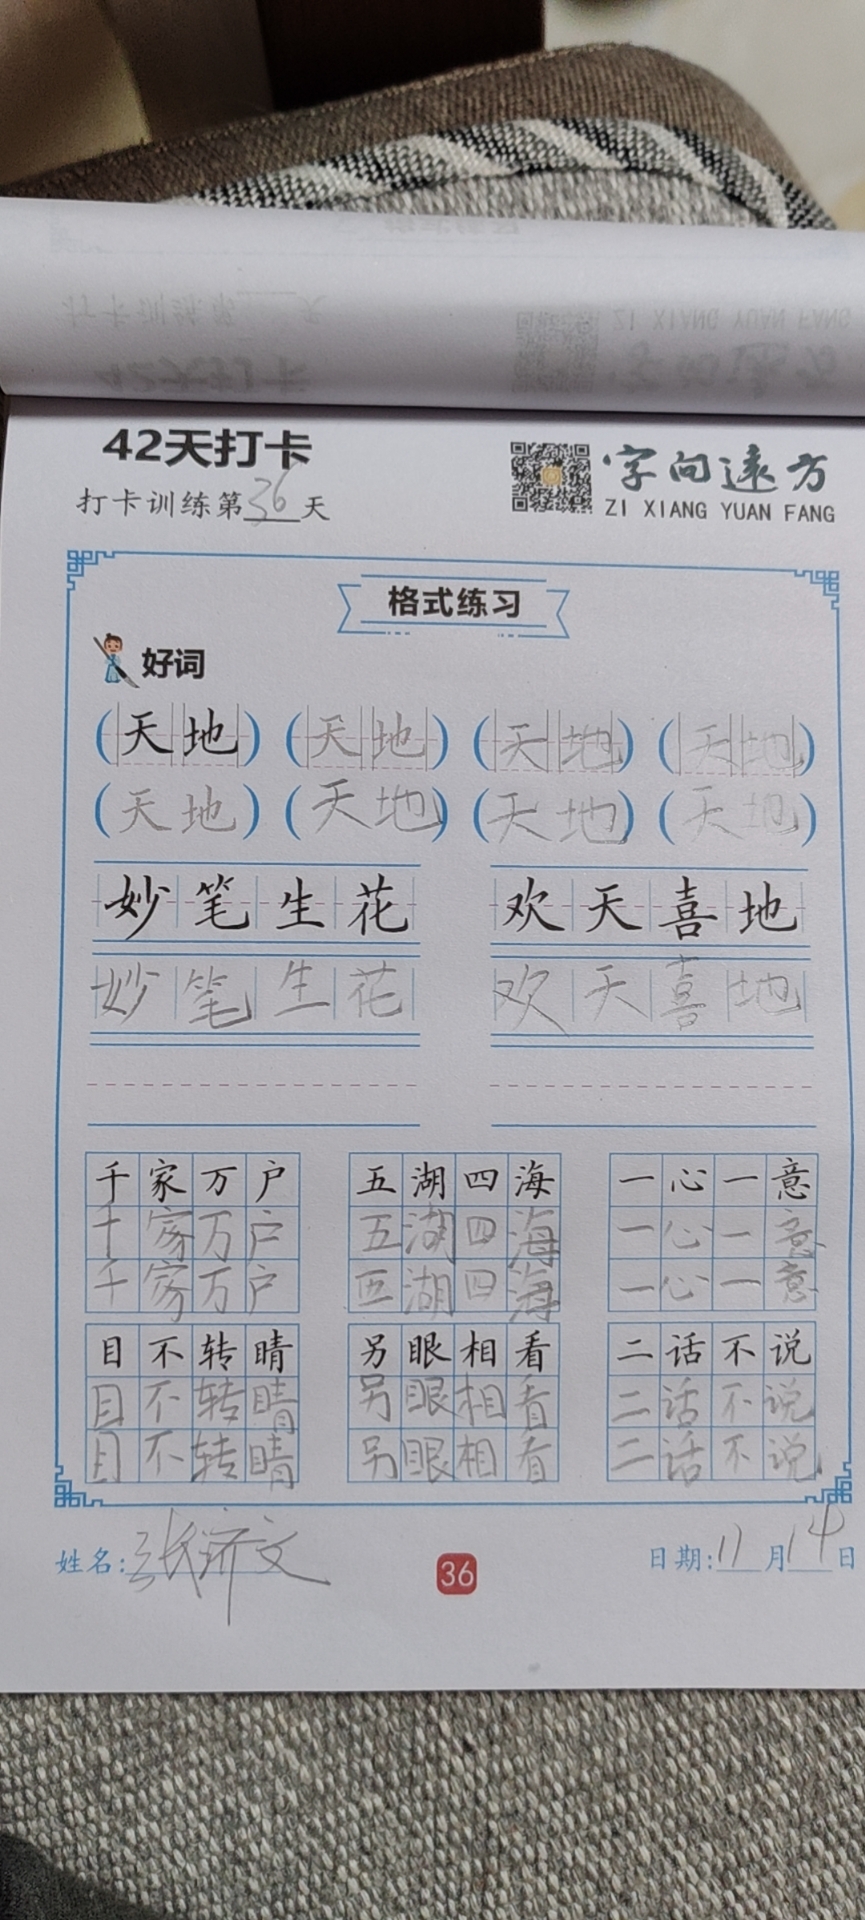 42天打卡
打卡训练第36天
字向远方
ZI XIANG YUAN FANG
格式练习
好词
(天地) (天地) (天地) (天地)
(天地) (天地) (天地) (天地)
妙笔生花 欢天喜地
妙笔生花 欢天喜地
千家万户 五湖四海 一心一意
千家万户 五湖四海 一心一意
千家万户 五湖四海 一心一意
目不转睛 另眼相看 二话不说
目不转睛 另眼相看 二话不说
目不转睛 另眼相看 二话不说
姓名:张济文
36
日期:11月14日